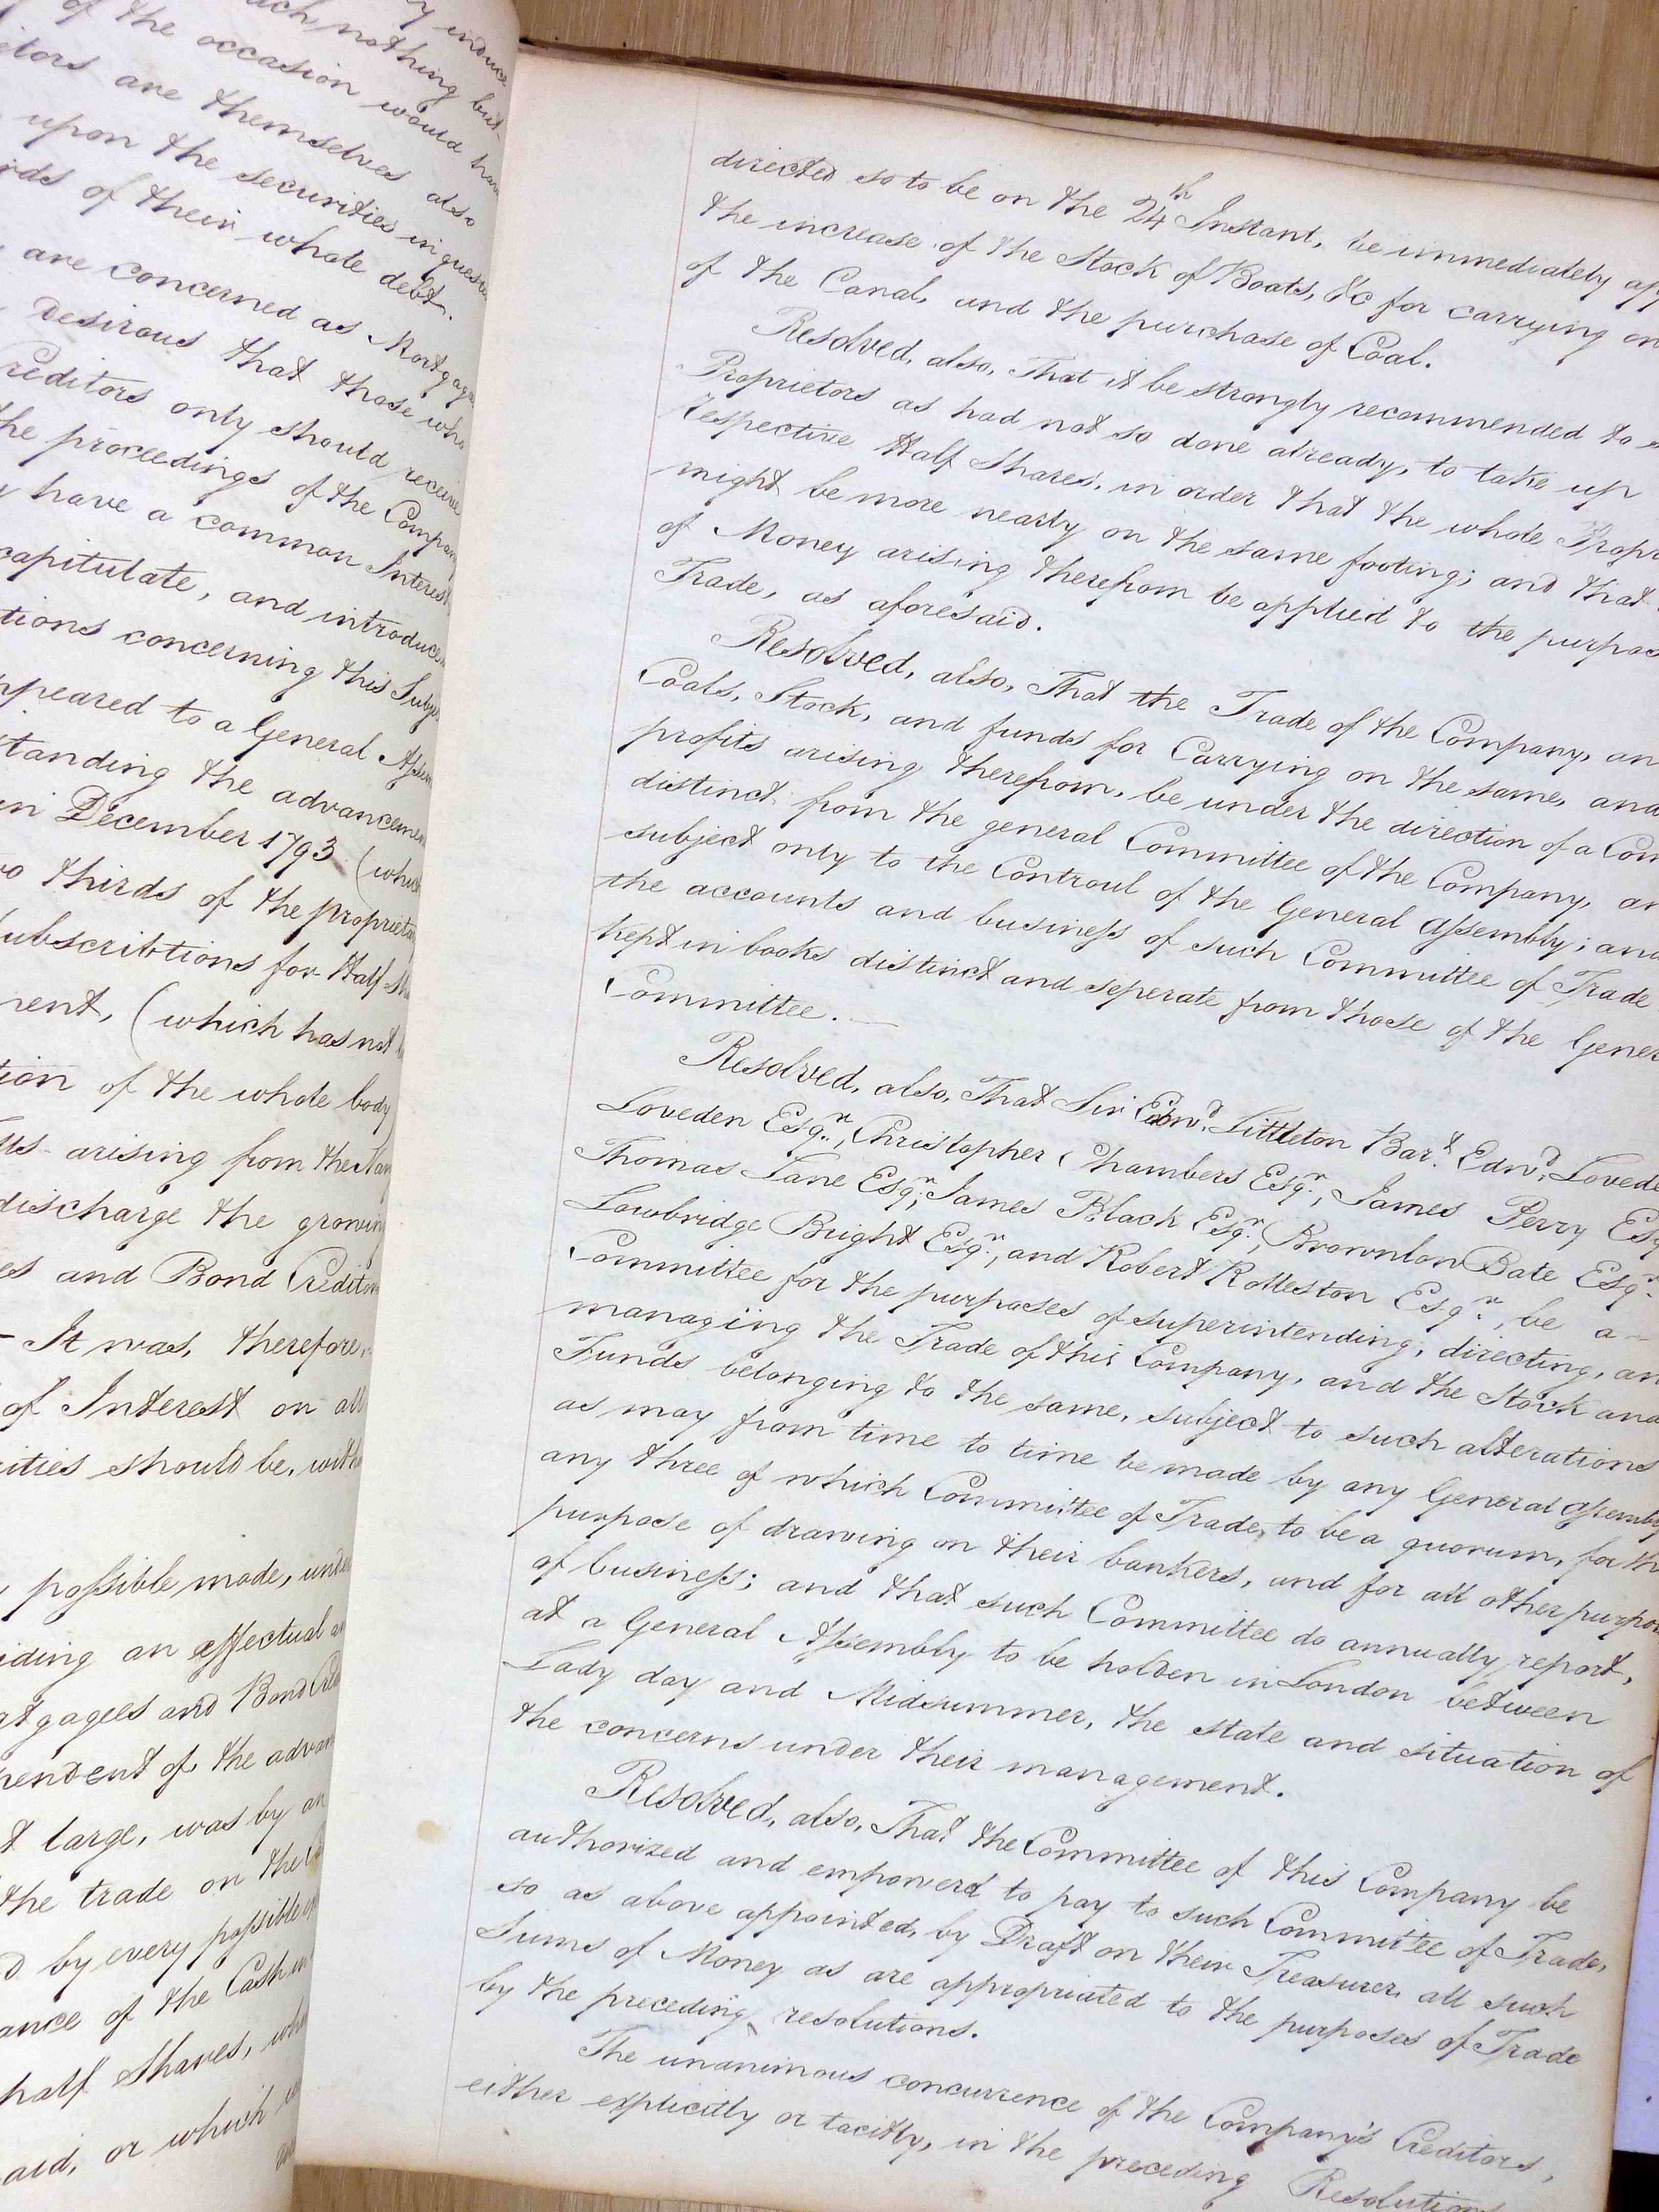 nothing but
of the occasion would
are themselves also
upon the securities in
of their whole debt.
are concerned as
desirous that those who
Creditors only should receive
the proceedings of the
have a common Interest
and introduce
concerning this
to a General
the advancement
in December 1793 (which
thirds of the
for Half
(which has not
of the whole body
arising from the
discharge the growing
and Bond
It was, therefore,
of Interest on all
should be,
possible mode, under
an effectual
and Bond
of the
large, was by an
the trade on the
by every possible
of the Cash
half Shares,
or which
directed so to be on the 24th Instant, be immediately
the increase of the Stock of Boats, &c for carrying on
of the Canal, and the purchase of Coal.
Resolved, also, That it be strongly recommended to
Proprietors as had not so done already, to take up
respective Half Shares, in order that the whole
might be more nearly on the same footing; and that
of Money arising therefrom be applied to the
Trade, as aforesaid.
Resolved, also, That the Trade of the Company,
Coals, Stock, and funds for Carrying on the same, and
profits arising therefrom, be under the direction of a
distinct from the general Committee of the Company,
subject only to the Controul of the General Assembly; and
the accounts and business of such Committee of Trade
kept in books distinct and seperate from those of the
Committee.
Resolved, also, That Sir Edwd. Littleton Bart. Edwd.
Loveden Esqr., Christopher Chambers Esqr., James Perry
Thomas Lane Esqr., James Black Esqr., Brownlow Bate Esqr.
Lowbridge Bright Esqr., and Robert Rolleston Esqr., be a
Committee for the purposes of superintending, directing,
managing the Trade of this Company, and the Stock and
Funds belonging to the same, subject to such alterations
as may from time to time be made by any General Assembly
any three of which Committee of Trade, to be a quorum, for
purpose of drawing on their bankers, and for all other
of business; and that such Committee do annually report,
at a General Assembly to be holden in London between
Lady day and Midsummer, the state and situation of
the concerns under their management.
Resolved, also, That the Committee of this Company be
authorized and empowerd to pay to such Committee of Trade,
so as above appointed, by Draft on their Treasurer, all such
Sums of Money as are appropriated to the purposes of Trade
by the preceding resolutions.
The unanimous concurrence of the Company's Creditors,
either explicitly or tacitly, in the preceding Resolutions